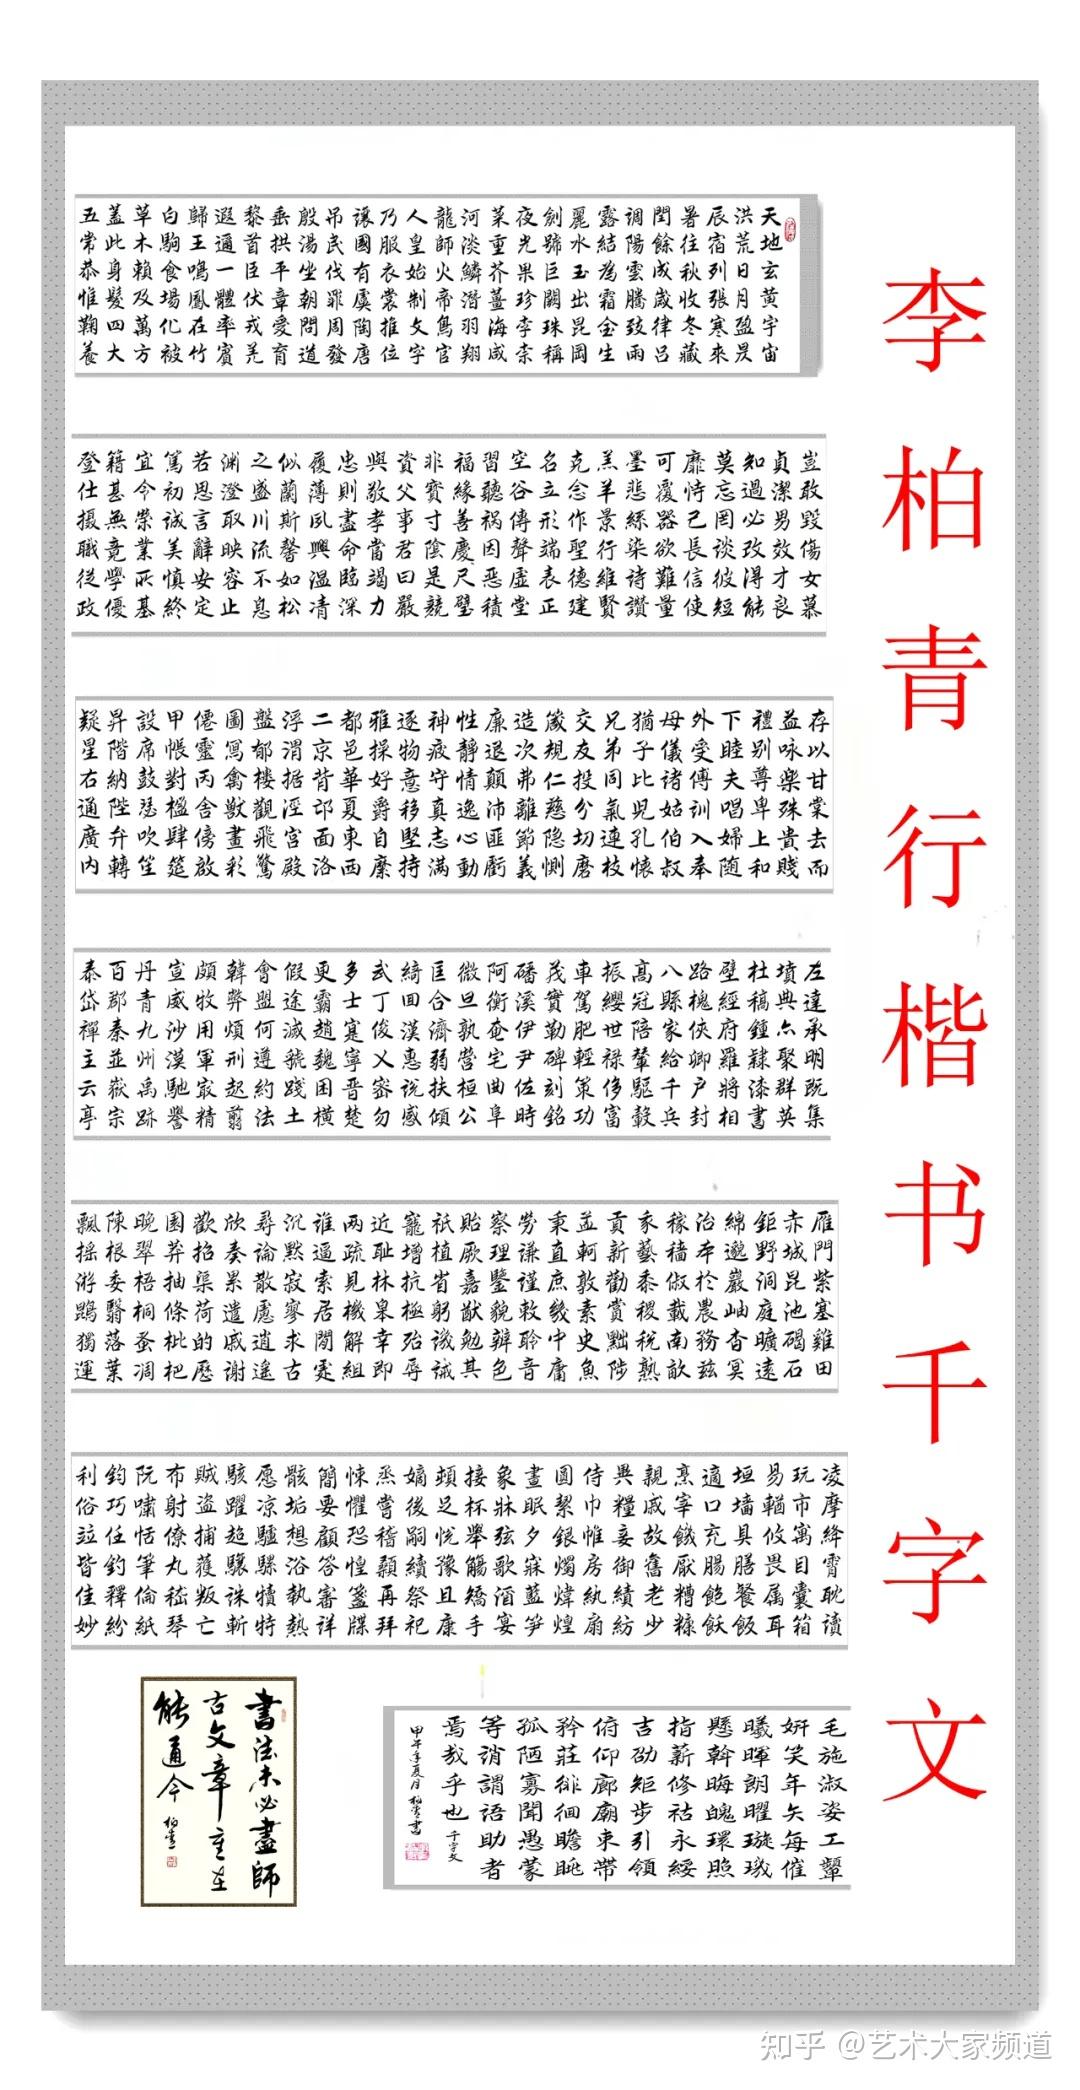 李柏青行楷书千字文
天地玄黄宇宙
洪荒日月盈昃
辰宿列張寒來
暑往秋收冬藏
閏餘成歲律吕
调陽雲騰致雨
露結為霜金生
麗水玉出昆岡
劍號巨闕珠稱
夜光果珍李柰
菜重芥薑海咸
河淡鱗潛羽翔
龍師火帝鳥官
人皇始制文字
乃服衣裳推位
讓國有虞陶唐
吊民伐罪周發
殷湯坐朝問道
垂拱平章愛育
黎首臣伏戎羌
遐邇一體率賓
歸王鳴鳳在竹
白駒食場化被
草木賴及萬方
蓋此身髮四大
五常恭惟鞠養
豈敢毀傷女慕
貞潔男效才良
知過必改得能
莫忘罔談彼短
靡恃己長信使
可覆器欲難量
墨悲絲染詩讚
羔羊景行維賢
克念作聖德建
名立形端表正
空谷傳聲虛堂
習聽禍因惡積
福緣善慶尺璧
非寶寸陰是競
資父事君曰嚴
與敬孝當竭力
忠則盡命臨深
履薄夙興溫凊
似蘭斯馨如松
之盛川流不息
渊澄取映容止
若思言辭安定
篤初誠美慎終
宜令榮業所基
籍甚無竟學優
登仕摄職從政
存以甘棠去而
益咏樂殊貴賤
禮别尊卑上和
下睦夫唱婦随
外受傅訓入奉
母儀诸姑伯叔
猶子比兒孔懷
兄弟同氣連枝
交友投分切磨
箴規仁慈隐惻
造次弗離節義
廉退顛沛匪虧
性靜情逸心動
神疲守真志滿
逐物意移堅持
雅操好爵自縻
都邑華夏東西
二京背邙面洛
浮渭据涇宮殿
盤郁楼觀飛驚
圖寫禽獸畫彩
僊靈丙舍傍啟
甲帳對楹肆筵
設席鼓瑟吹笙
昇階納陛弁轉
疑星右通廣内
左達承明既集
墳典亦聚群英
杜稿鍾隸漆書
壁經府羅將相
路槐俠卿户封
八縣家給千兵
高冠陪輦驅轂
振纓世禄侈富
車駕肥輕策功
茂實勒碑刻銘
磻溪伊尹佐時
阿衡奄宅曲阜
微旦孰營桓公
匡合濟弱扶傾
綺回漢惠説感
武丁俊乂密勿
多士寔寧晉楚
更霸趙魏困横
假途滅虢踐土
會盟何遵約法
韓弊煩刑起翦
頗牧用軍最精
宣威沙漠馳譽
丹青九州禹跡
百郡秦並嶽宗
泰岱禪主云亭
雁門紫塞雞田
赤城昆池碣石
鉅野洞庭曠遠
綿邈巖岫杳冥
治本於農務兹
稼穡俶載南畝
我藝黍稷税熟
貢新勸賞黜陟
孟軻敦素史魚
秉直庶幾中庸
勞謙謹敕聆音
察理鑒貌辨色
貽厥嘉猷勉其
祇植省躬譏誡
寵增抗極殆辱
近耻林皋幸即
两疏見機解組
誰逼索居閒處
沉默寂寥求古
尋論散慮逍遥
欣奏累遣戚謝
歡招渠荷的歷
園莽抽條枇杷
晚翠梧桐蚤凋
陳根委翳落葉
飄摇游鵾獨運
凌摩絳霄耽讀
玩市寓目囊箱
易輶攸畏属耳
垣墙具膳餐飯
適口充腸飽飫
烹宰饑厭糟糠
親戚故舊老少
異糧妾御績紡
侍巾帷房紈扇
圓絜銀燭煒煌
晝眠夕寐藍笋
象牀弦歌酒宴
接杯舉觴矯手
頓足悦豫且康
嫡後嗣續祭祀
烝嘗稽顙再拜
悚懼恐惶箋牒
簡要顧答審詳
骸垢想浴執熱
愿凉驢騾犢特
駭躍超驤誅斬
賊盗捕獲叛亡
布射僚丸嵇琴
阮嘯恬筆倫紙
鈞巧任釣釋紛
利俗竝皆佳妙
毛施淑姿工顰
妍笑年矢每催
曦暉朗曜璇璣
懸斡晦魄環照
指薪修祜永綏
吉劭矩步引領
俯仰廊廟束帶
矜莊徘徊瞻眺
孤陋寡聞愚蒙
等誚謂語助者
焉哉乎也 千字文
甲午年夏月柏青書
書法未必盡師
古文章重在
能通今
柏青
知乎 @艺术大家频道